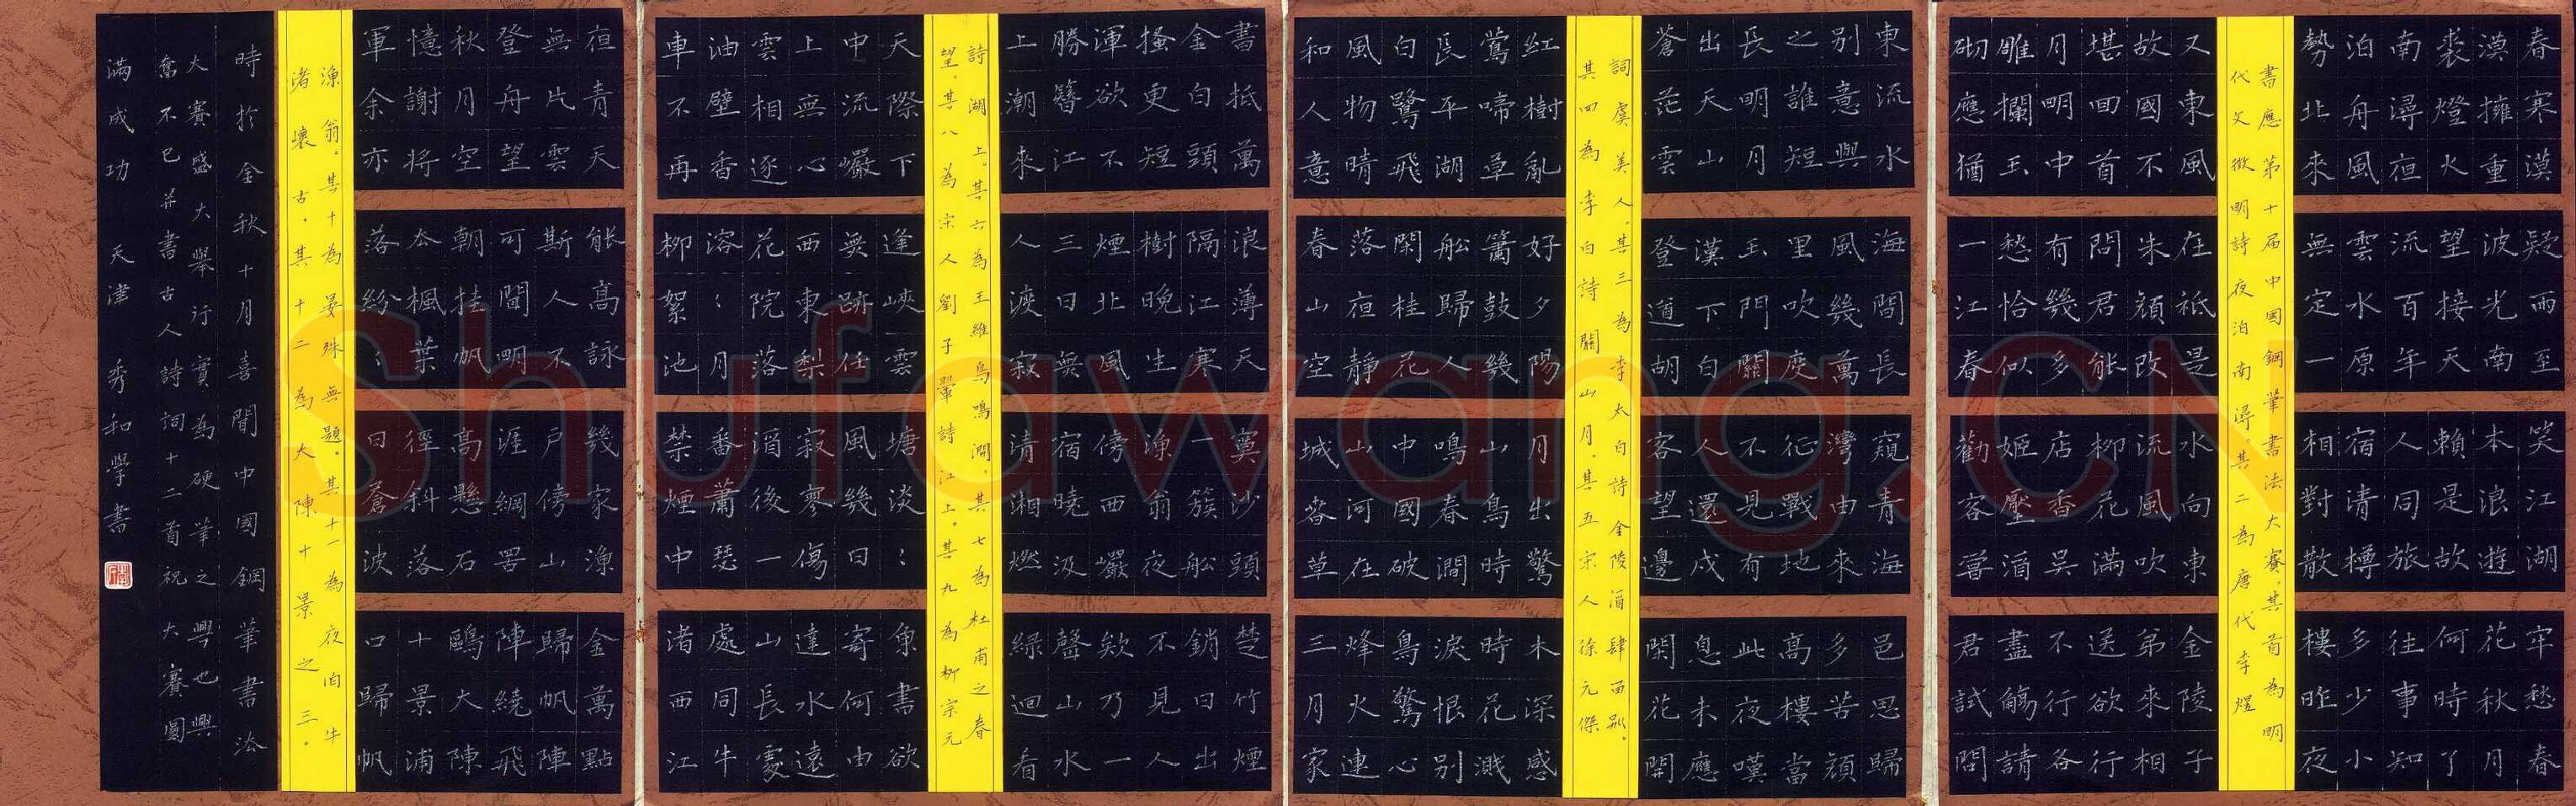 春寒漠
漠擁重
裘燈火
南潯夜
泊舟風
勢北來
疑雨至
波光南
望接天
流百年
雲水原
無定一
笑江湖
本浪遊
賴是故
人同旅
宿清樽
相對散
牢愁春
花秋月
何時了
往事知
多少小
樓昨夜
書應第十届中国鋼筆書法大賽。其一首為明
代文徵明詩夜泊南潯。其二為唐代李煜
又東風
故國不
堪回首
月明中
雕欄玉
砌應猶
在祗是
朱顏改
問君能
有幾多
愁恰似
一江春
水向東
流風吹
柳花滿
店香吳
姬壓酒
勸客嘗
金陵子
弟來相
送欲行
不行各
盡觴請
君試問
東流水
別意與
之誰短
長明月
出天山
蒼茫雲
海間長
風幾萬
里吹度
玉門關
漢下白
登道胡
窺青海
灣由來
征戰地
不見有
人還戍
客望邊
邑思歸
多苦顏
高樓當
此夜嘆
息未應
閑花開
詞虞美人。其三為李太白詩金陵酒肆留別。
其四為李白詩關山月。其五宋人徐元傑
紅樹亂
鶯啼草
長平湖
白鷺飛
風物晴
和人意
好夕陽
簫鼓幾
船歸人
閑桂花
落夜靜
春山空
月出驚
山鳥時
鳴春澗
中國破
山河在
城春草
木深感
時花濺
淚恨別
鳥驚心
烽火連
三月家
書抵萬
金白頭
搔更短
渾欲不
勝簪江
上潮來
浪薄天
隔江寒
樹晚生
煙北風
三日無
人渡寂
寞沙頭
一簇船
漁翁夜
傍西巖
宿曉汲
清湘燃
楚竹煙
銷日出
不見人
欸乃一
聲山水
綠迴看
詩湖上。其六為王維鳥鳴澗。其七為杜甫之春
望。其八為宋人劉子翬詩江上。其九為柳宗元
天際下
中流巖
上無心
雲相逐
油壁香
車不再
逢峽雲
無跡任
西東梨
花院落
溶〻月
柳絮池
塘淡〻
風幾日
寂寥傷
酒後一
番蕭瑟
禁煙中
魚書欲
寄何由
達水遠
山長處
處同牛
渚西江
夜青天
無片雲
登舟望
秋月空
憶謝將
軍余亦
能高詠
斯人不
可聞明
朝挂帆
去楓葉
落紛〻
幾家漁
戶傍山
涯網罟
高懸石
徑斜落
日蒼波
金萬點
歸帆陣
陣繞飛
鷗大陳
十景浦
口歸帆
漁翁。其十為晏殊無題。其十一為夜泊牛
渚懷古。其十二為大陳十景之三。
時於金秋十月喜聞中國鋼筆書法
大賽盛大舉行實為硬筆之興也興
奮不已并書古人詩詞十二首祝大賽圓
滿成功天津秀和學書
Shufawang.CN